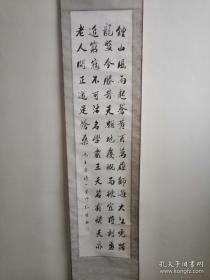 鐘山風雨起蒼黃百萬雄師過大江虎踞
龍盤今勝昔天翻地覆慨而慷宜將剩勇
追窮寇不可沽名學霸王天若有情天亦
老人間正道是滄桑